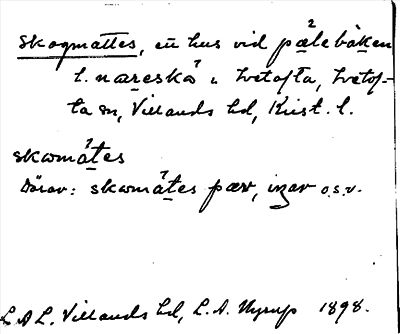 Skogmattes, ett hus vid pålebäken
l. næreskå i Ivetofta, Ivetof-
ta sn, Villands hd, Krist. l.
skωmåtes
Därav: skωmåtes pær, ingar o.s.v.
L.A.L. Villands hd, L. A. Nyrup 1898.